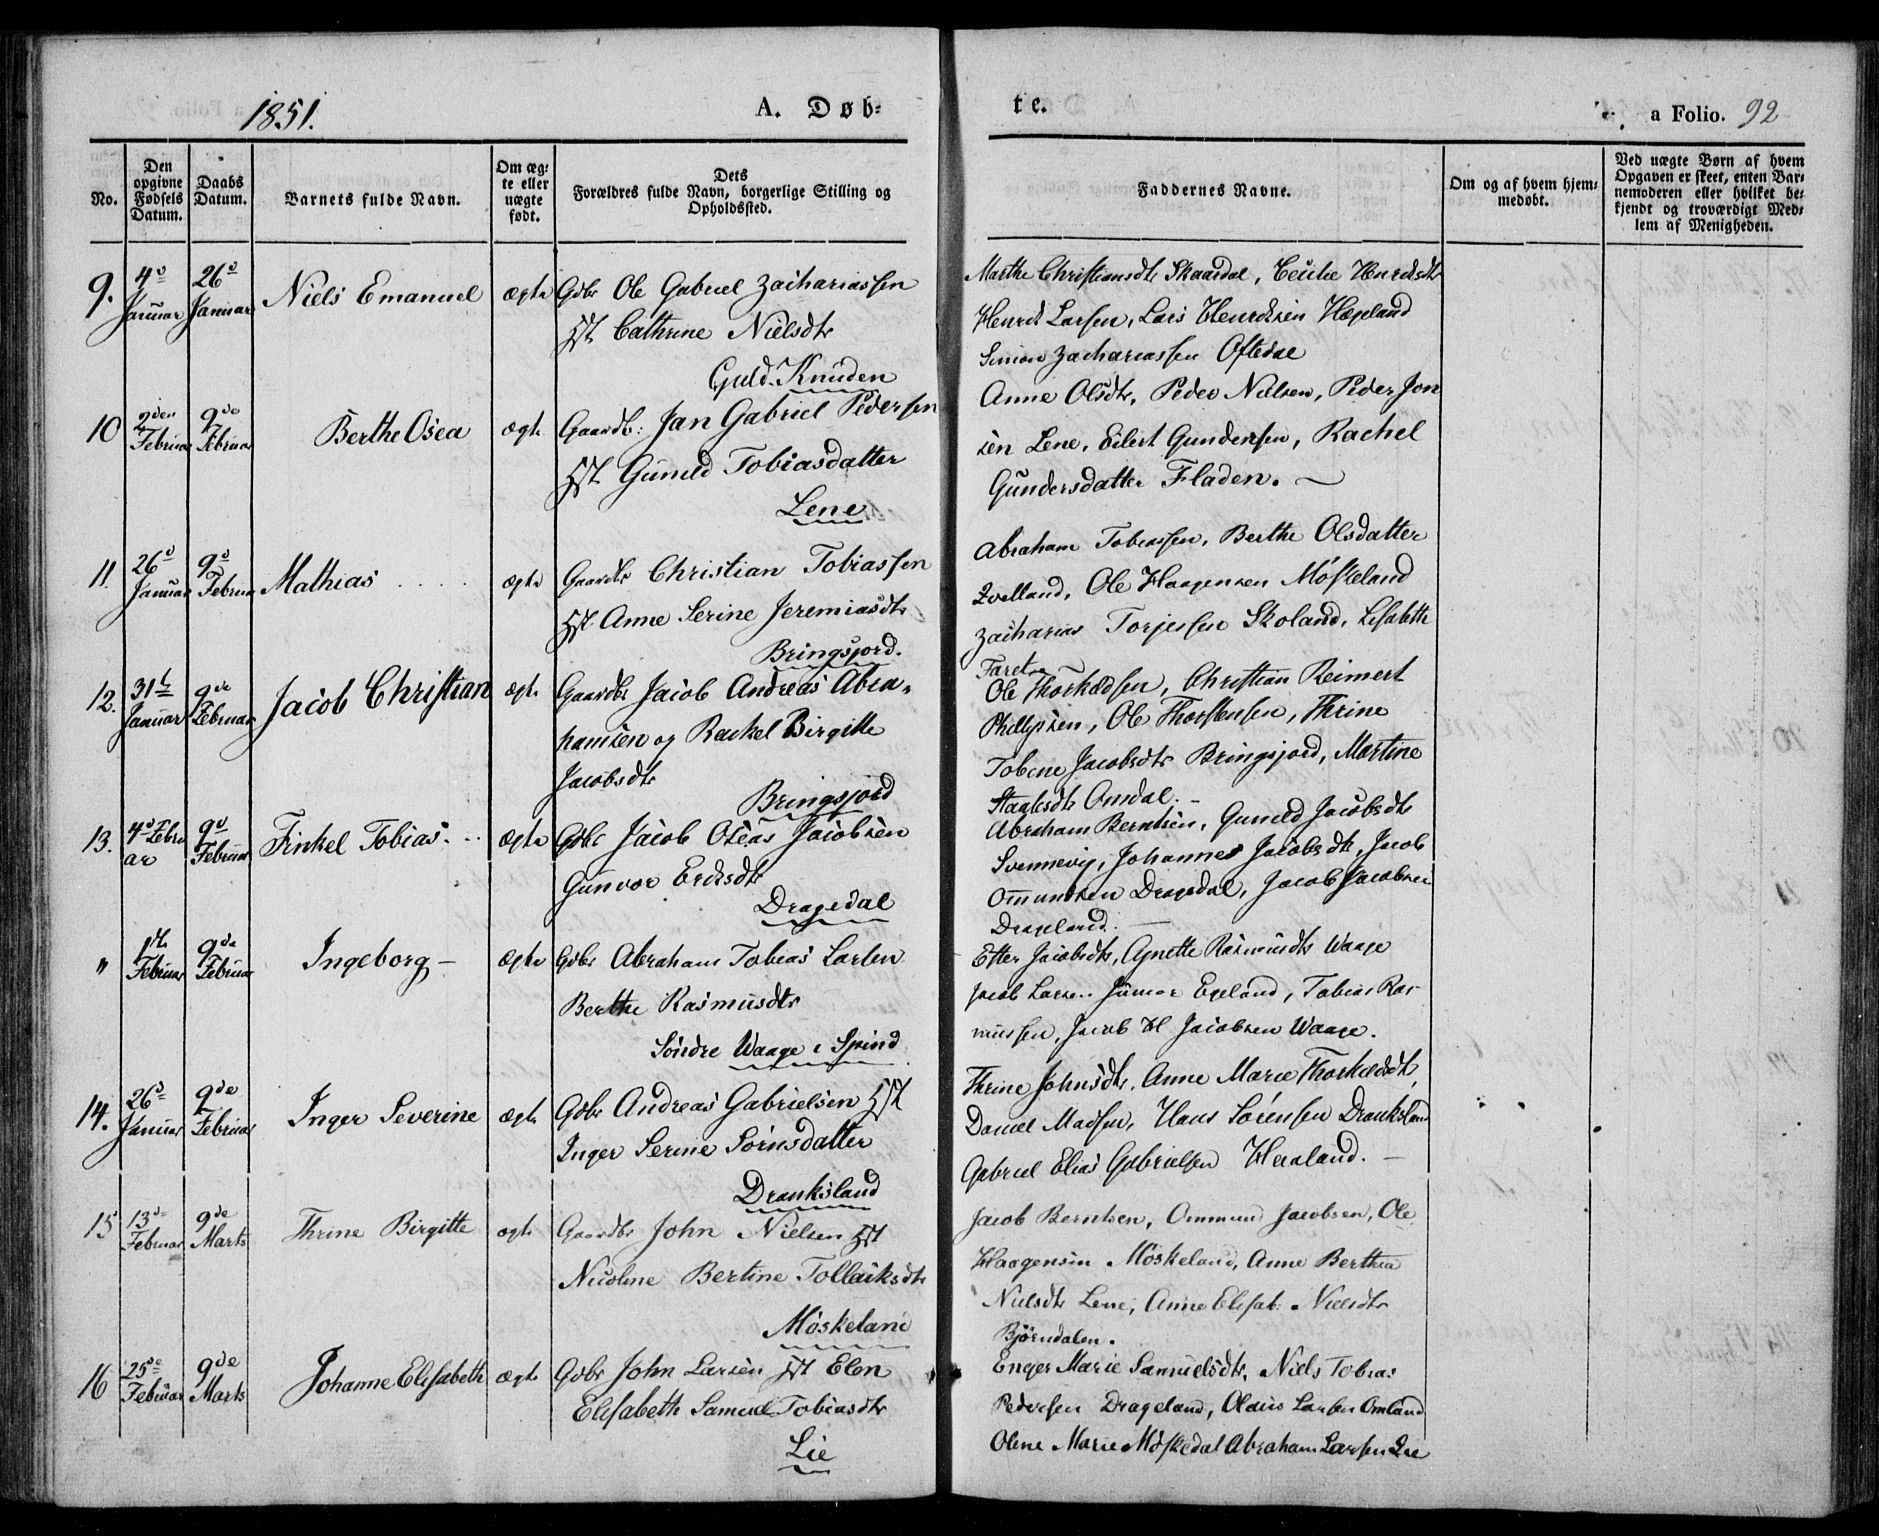 1851.
A. Døb-
te.
a Folio. 92
No.
Den opgivne Fødsels Datum.
Daabs Datum.
Barnets fulde Navn.
Om æg-te eller uægte født.
Dets Forældres fulde Navn, borgerlige Stilling og Opholdssted.
Faddernes Navne.
Om og af hvem hjem-medøbt.
Ved uægte Børn af hvem Opgaven er skeet, enten Bar-nemoderen eller hvilket be-kjendt og troværdigt Med-lem af Menigheden.
9. 4d Januar 26d Januar Niels Emanuel ægte Gdbr Ole Gabriel Zachariassen
Hst Cathrine Nielsdtr
Guld. Knuden
Marthe Christiansdtr Skaardal, Cecilie Henricksdtr
Henrik Larsen, Lars Henriksen Hægeland
Simon Zachariassen Oftedal
10 2den Februar 9de Februar Berthe Osea ægte Gaardb: Jan Gabriel Pedersen
Hst Gunild Tobiasdatter
Lene
Anne Olsdtr, Peder Nielsen, Peder Jon
sen Lene, Eilert Gundersen, Rachel
Gundersdatter Fladen.
11. 26d Januar 9d Februar Mathias ægte Gaardbr Christian Tobiassen
Hst Anne Serine Jeremiasdtr
Bringsjord.
Abraham Tobiassen, Berthe Olsdatter
Qvelland, Ole Haagensen Møskeland
Zacharias Torjessen Skoland, Lisabeth
Taret
12. 31t Januar 9de Februar Jacob Christian ægte Gaardbr Jacob Andreas Abra-
hamsen og Rachel Birgitte
Jacobsdtr
Bringsjord
Ole Thorkildsen, Christian Reinert
Phillipsen, Ole Thorstensen, Thrine
Tobine Jacobsdtr Bringsjord, Martine
Staaksdtr Omdal.
13. 4d Febru
ar 9d Februar Finkel Tobias ægte Gdbr Jacob Oseas Jacobsen
Gunvor Ericsdtr
Dragedal
Abraham Berntsen, Gunild Jacobsdtr
Svennevig, Johannes Jacobsdtr, Jacob
Ommundsen Dragedal, Jacob Jacobsen
Drageland.
" 1st Februar 9de Februar Ingeborg ægte Gdbr Abraham Tobias Larsen
Berthe Rasmusdtr
Søndre Waage i Spind
Ester Jacobsdtr, Agnette Rasmusdtr Waage
Jacob Larsen Junior Egeland, Tobias Ras-
mussen, Jacob H Jacobsen Waage.
14. 26d Januar 9de Februar Inger Severine ægte Gdbr Andreas Gabrielsen Hst
Inger Serine Sørnsdatter
Dranksland
Thrine Johnsdtr, Anne Marie Thorkildsdtr,
Daniel Madsen, Hans Sørensen Dranksland
Gabriel Elias Gabrielsen Hæaland.
15 13de Februar 9de Marts Thrine Birgitte ægte Gaardbr John Nielsen Hst
Nicoline Bertine Tollaksdtr
Møskeland
Jacob Berntsen, Ommund Jacobsen, Ole
Haagensen Møskeland, Anne Berthea
Nielsdtr Lene, Anne Elisab: Nielsdtr
Bjørndalen.
16 25de Februar 9de Marts Johanne Elisabeth ægte Gdbr John Larsen Hst Elen
Elisabeth Samuel Tobiasdtr
Lie
Enger Marie Samuelsdtr, Niels Tobias
Pedersen Drageland, Olaus Larsen Omland
Olene Marie Møskedal Abraham Larsen Lie